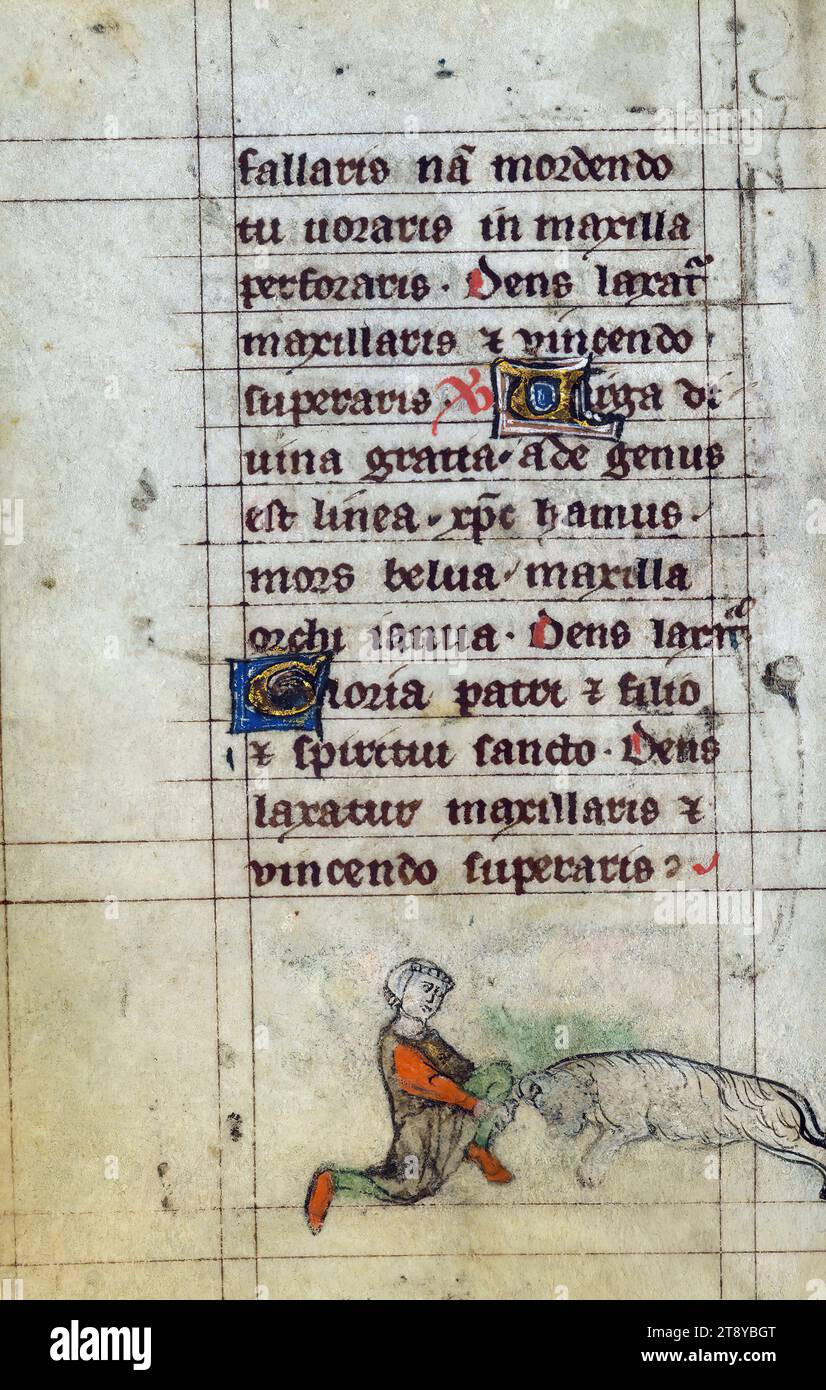 fallaris nā mordendo
tu uoraris in maxilla
perforaris · Dens laxat᷑
maxillaris ⁊ vincendo
superaris · V Virga di
uina gratia · ade genus
est linea · xp̄c hamus ·
mors belua · maxilla
orchi ianua · Dens laxat᷑
Gloria patri ⁊ filio
⁊ spiritui sancto · Dens
laxatur maxillaris ⁊
vincendo superaris
alamy
Image ID: 2T8YBGT
www.alamy.com